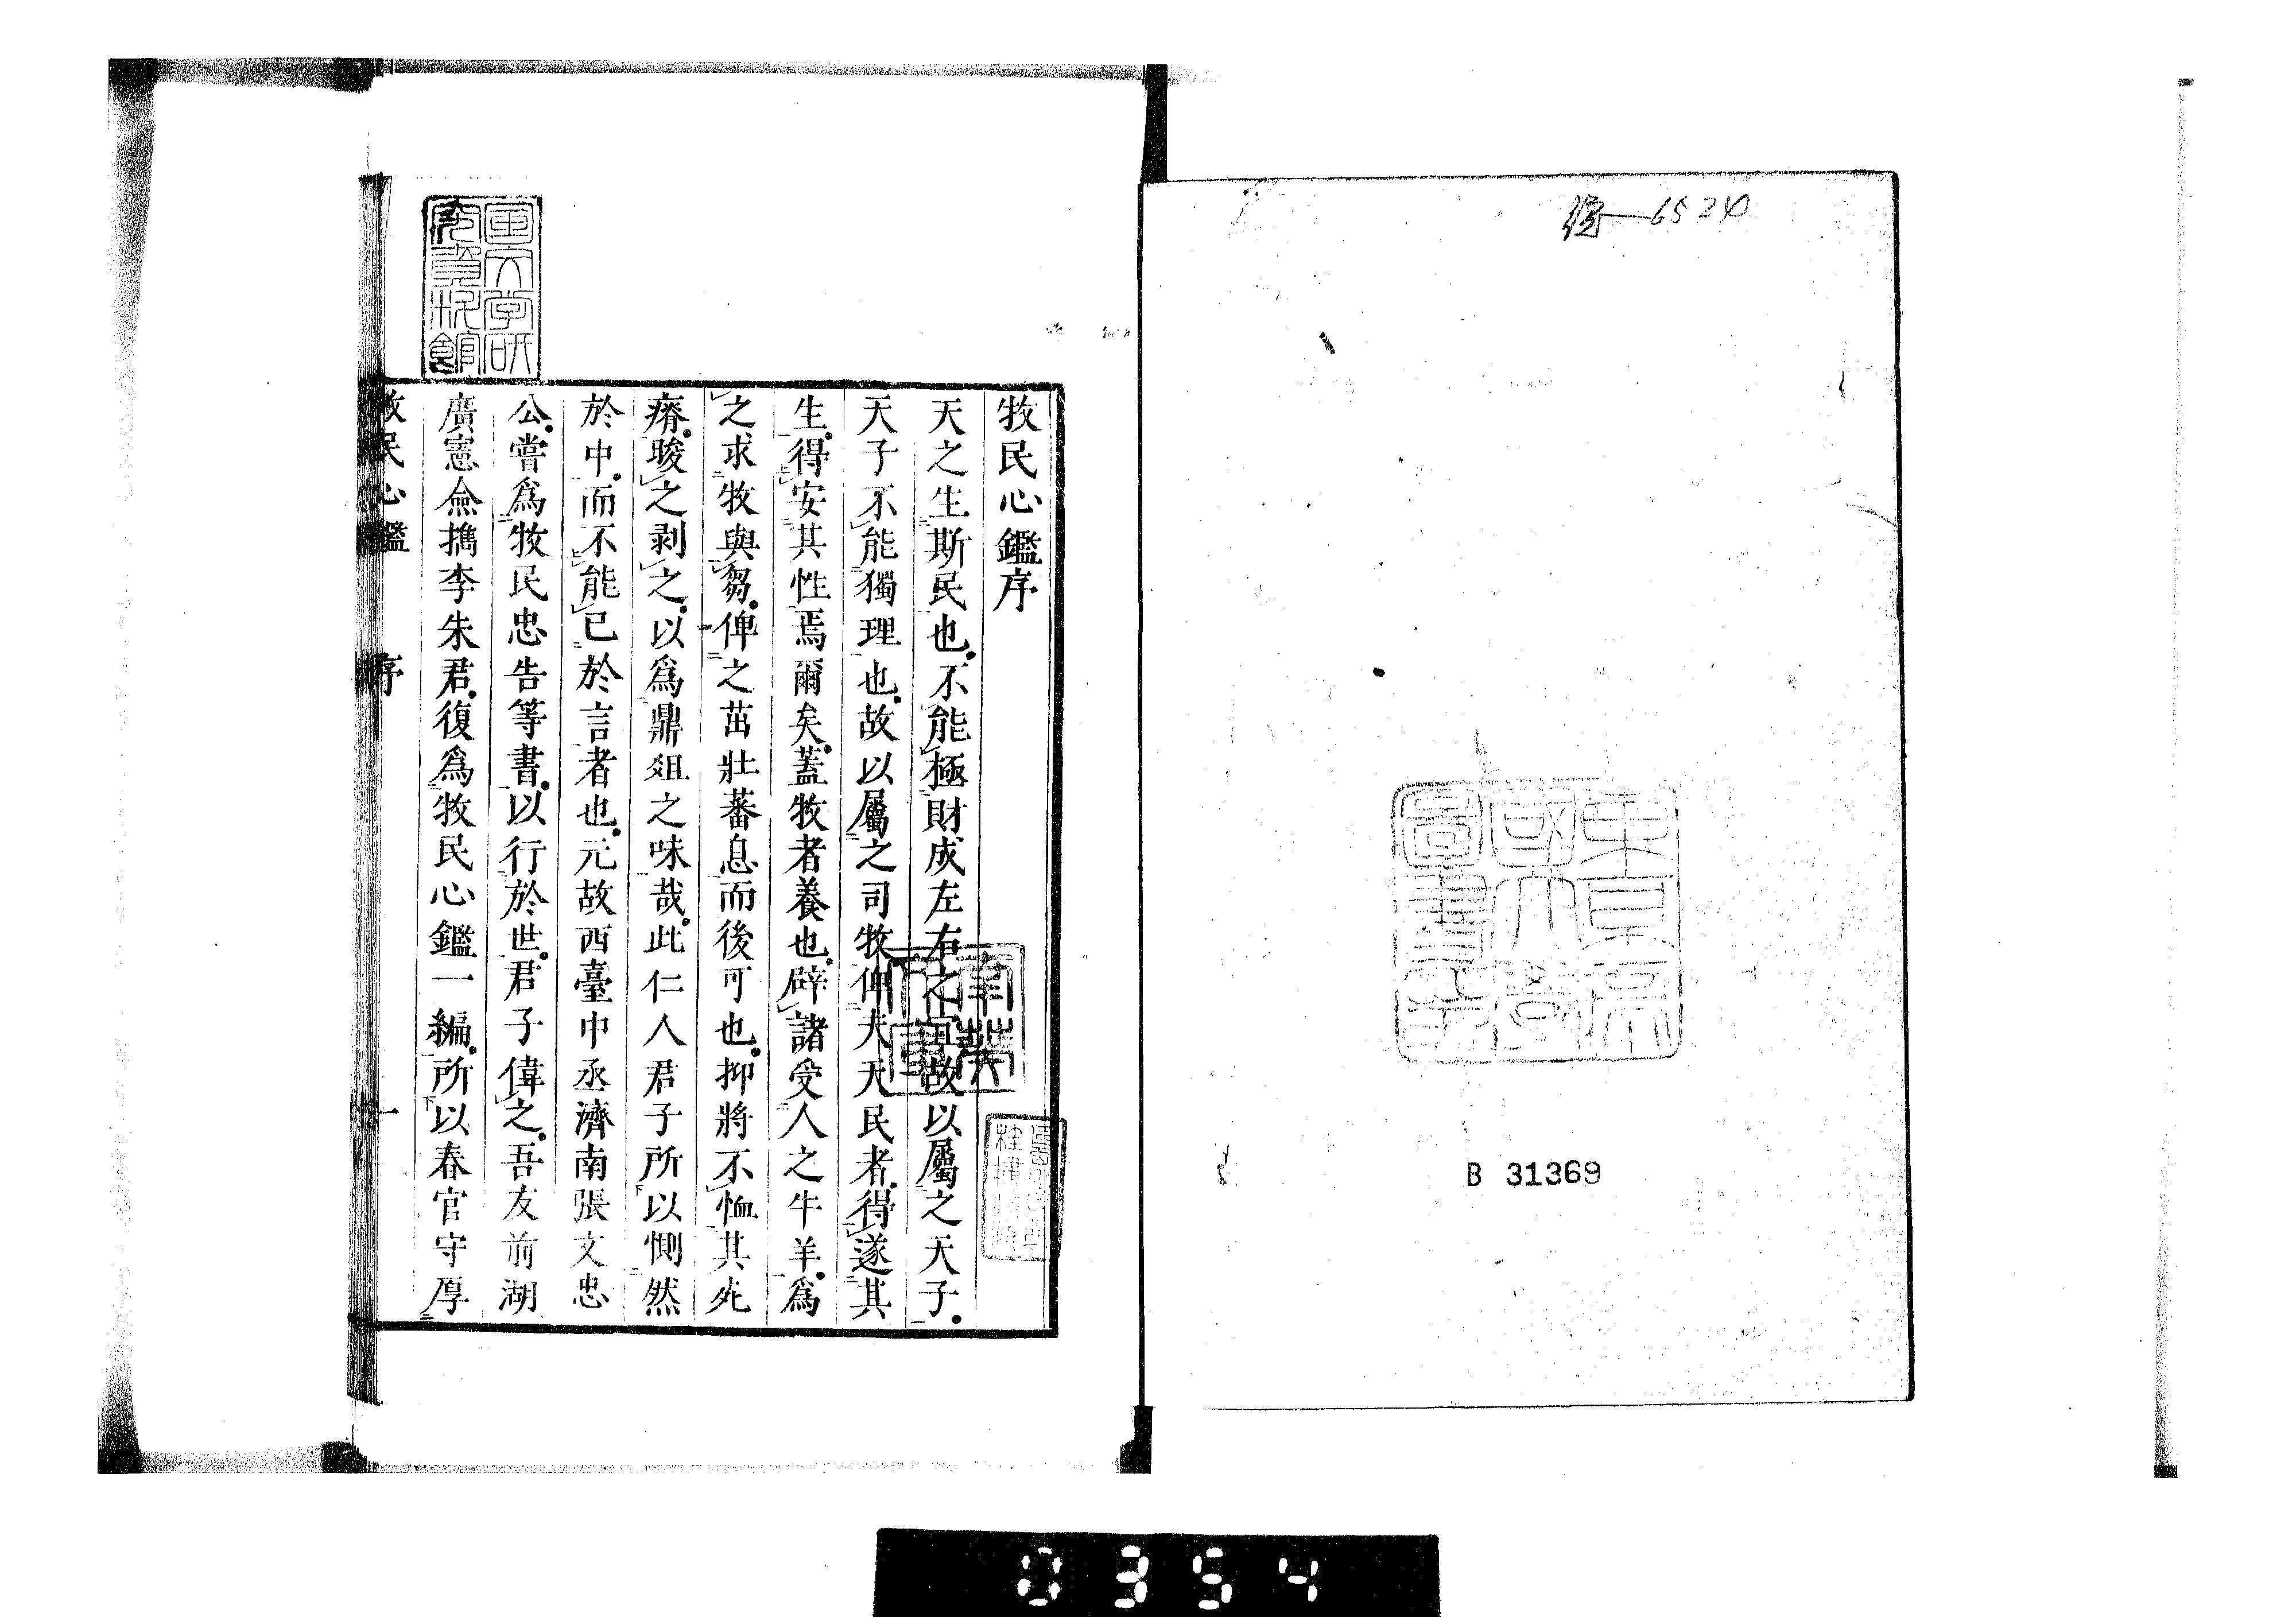 6524
B 31369
牧民心鑑序
天之生斯民也不能極財成左右之宜故以屬之天子
天子不能獨理也故以屬之司牧俾夫天民者得遂其
生得安其性焉爾矣蓋牧者養也辟諸受人之牛羊爲
之求牧與芻俾之茁壯蕃息而後可也抑將不恤其死
瘠朘之剥之以爲鼎俎之味哉此仁人君子所以惻然
於中而不能已於言者也元故西臺中丞濟南張文忠
公嘗爲牧民忠告等書以行於世君子偉之吾友前湖
廣憲僉檇李朱君復爲牧民心鑑一編所以春官守厚
牧民心鑑 序 一
國文学研究資料館
0354